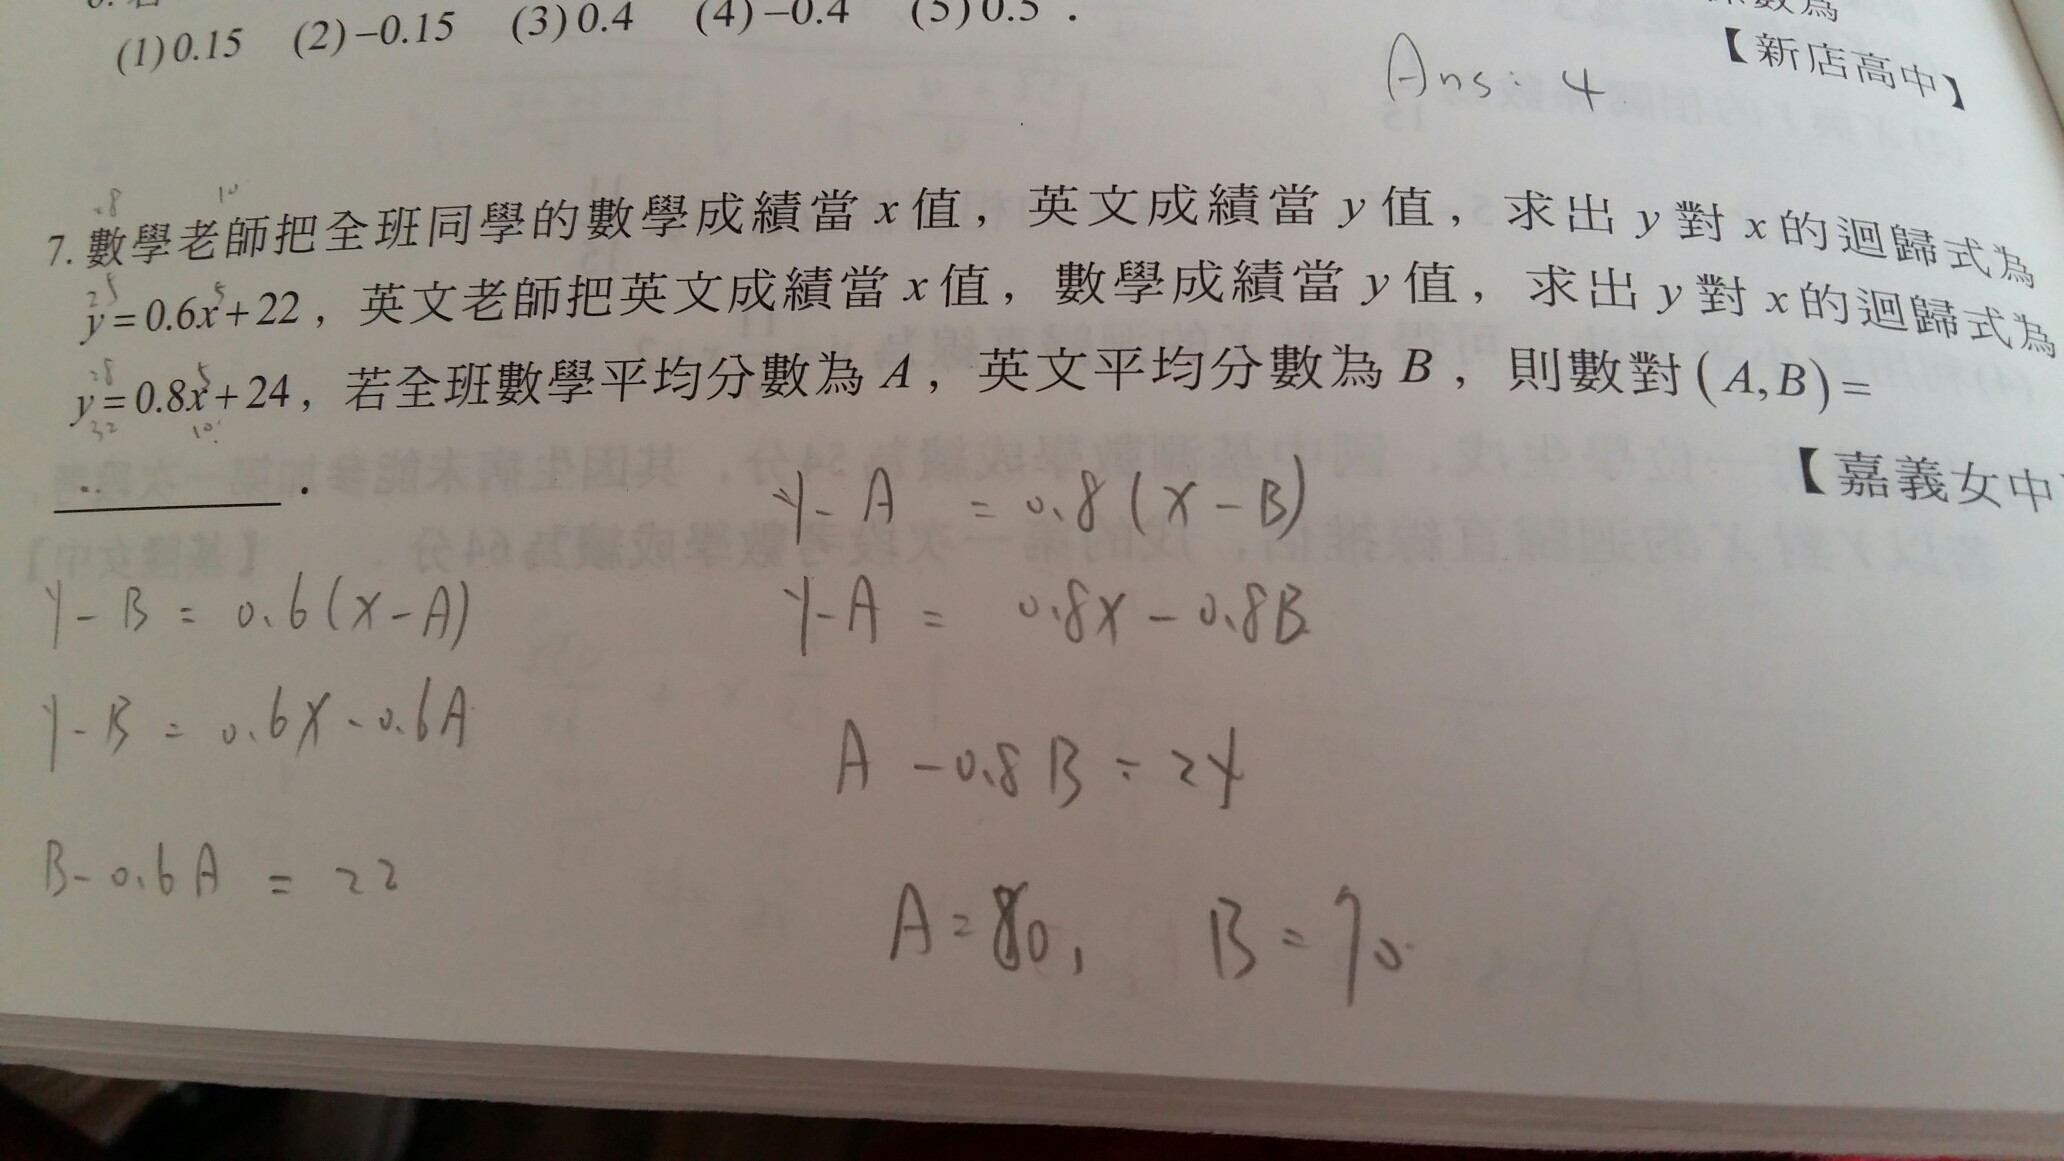 (1)0.15 (2)−0.15 (3)0.4 (4)−0.4 (5)0.5．
數為
【新店高中】
Ans: 4
7. 數學老師把全班同學的數學成績當 x 值，英文成績當 y 值，求出 y 對 x 的迴歸式為
y=0.6x+22，英文老師把英文成績當 x 值，數學成績當 y 值，求出 y 對 x 的迴歸式為
y=0.8x+24，若全班數學平均分數為 A，英文平均分數為 B，則數對 (A,B)=
．
【嘉義女中
y-A = 0.8(x-B)
y-B = 0.6(x-A)
y-A = 0.8x-0.8B
y-B = 0.6x-0.6A
A-0.8B = 24
B-0.6A = 22
A=80, B=70